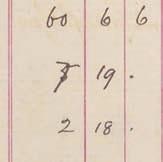 60 6 6
19 .
2 18 .